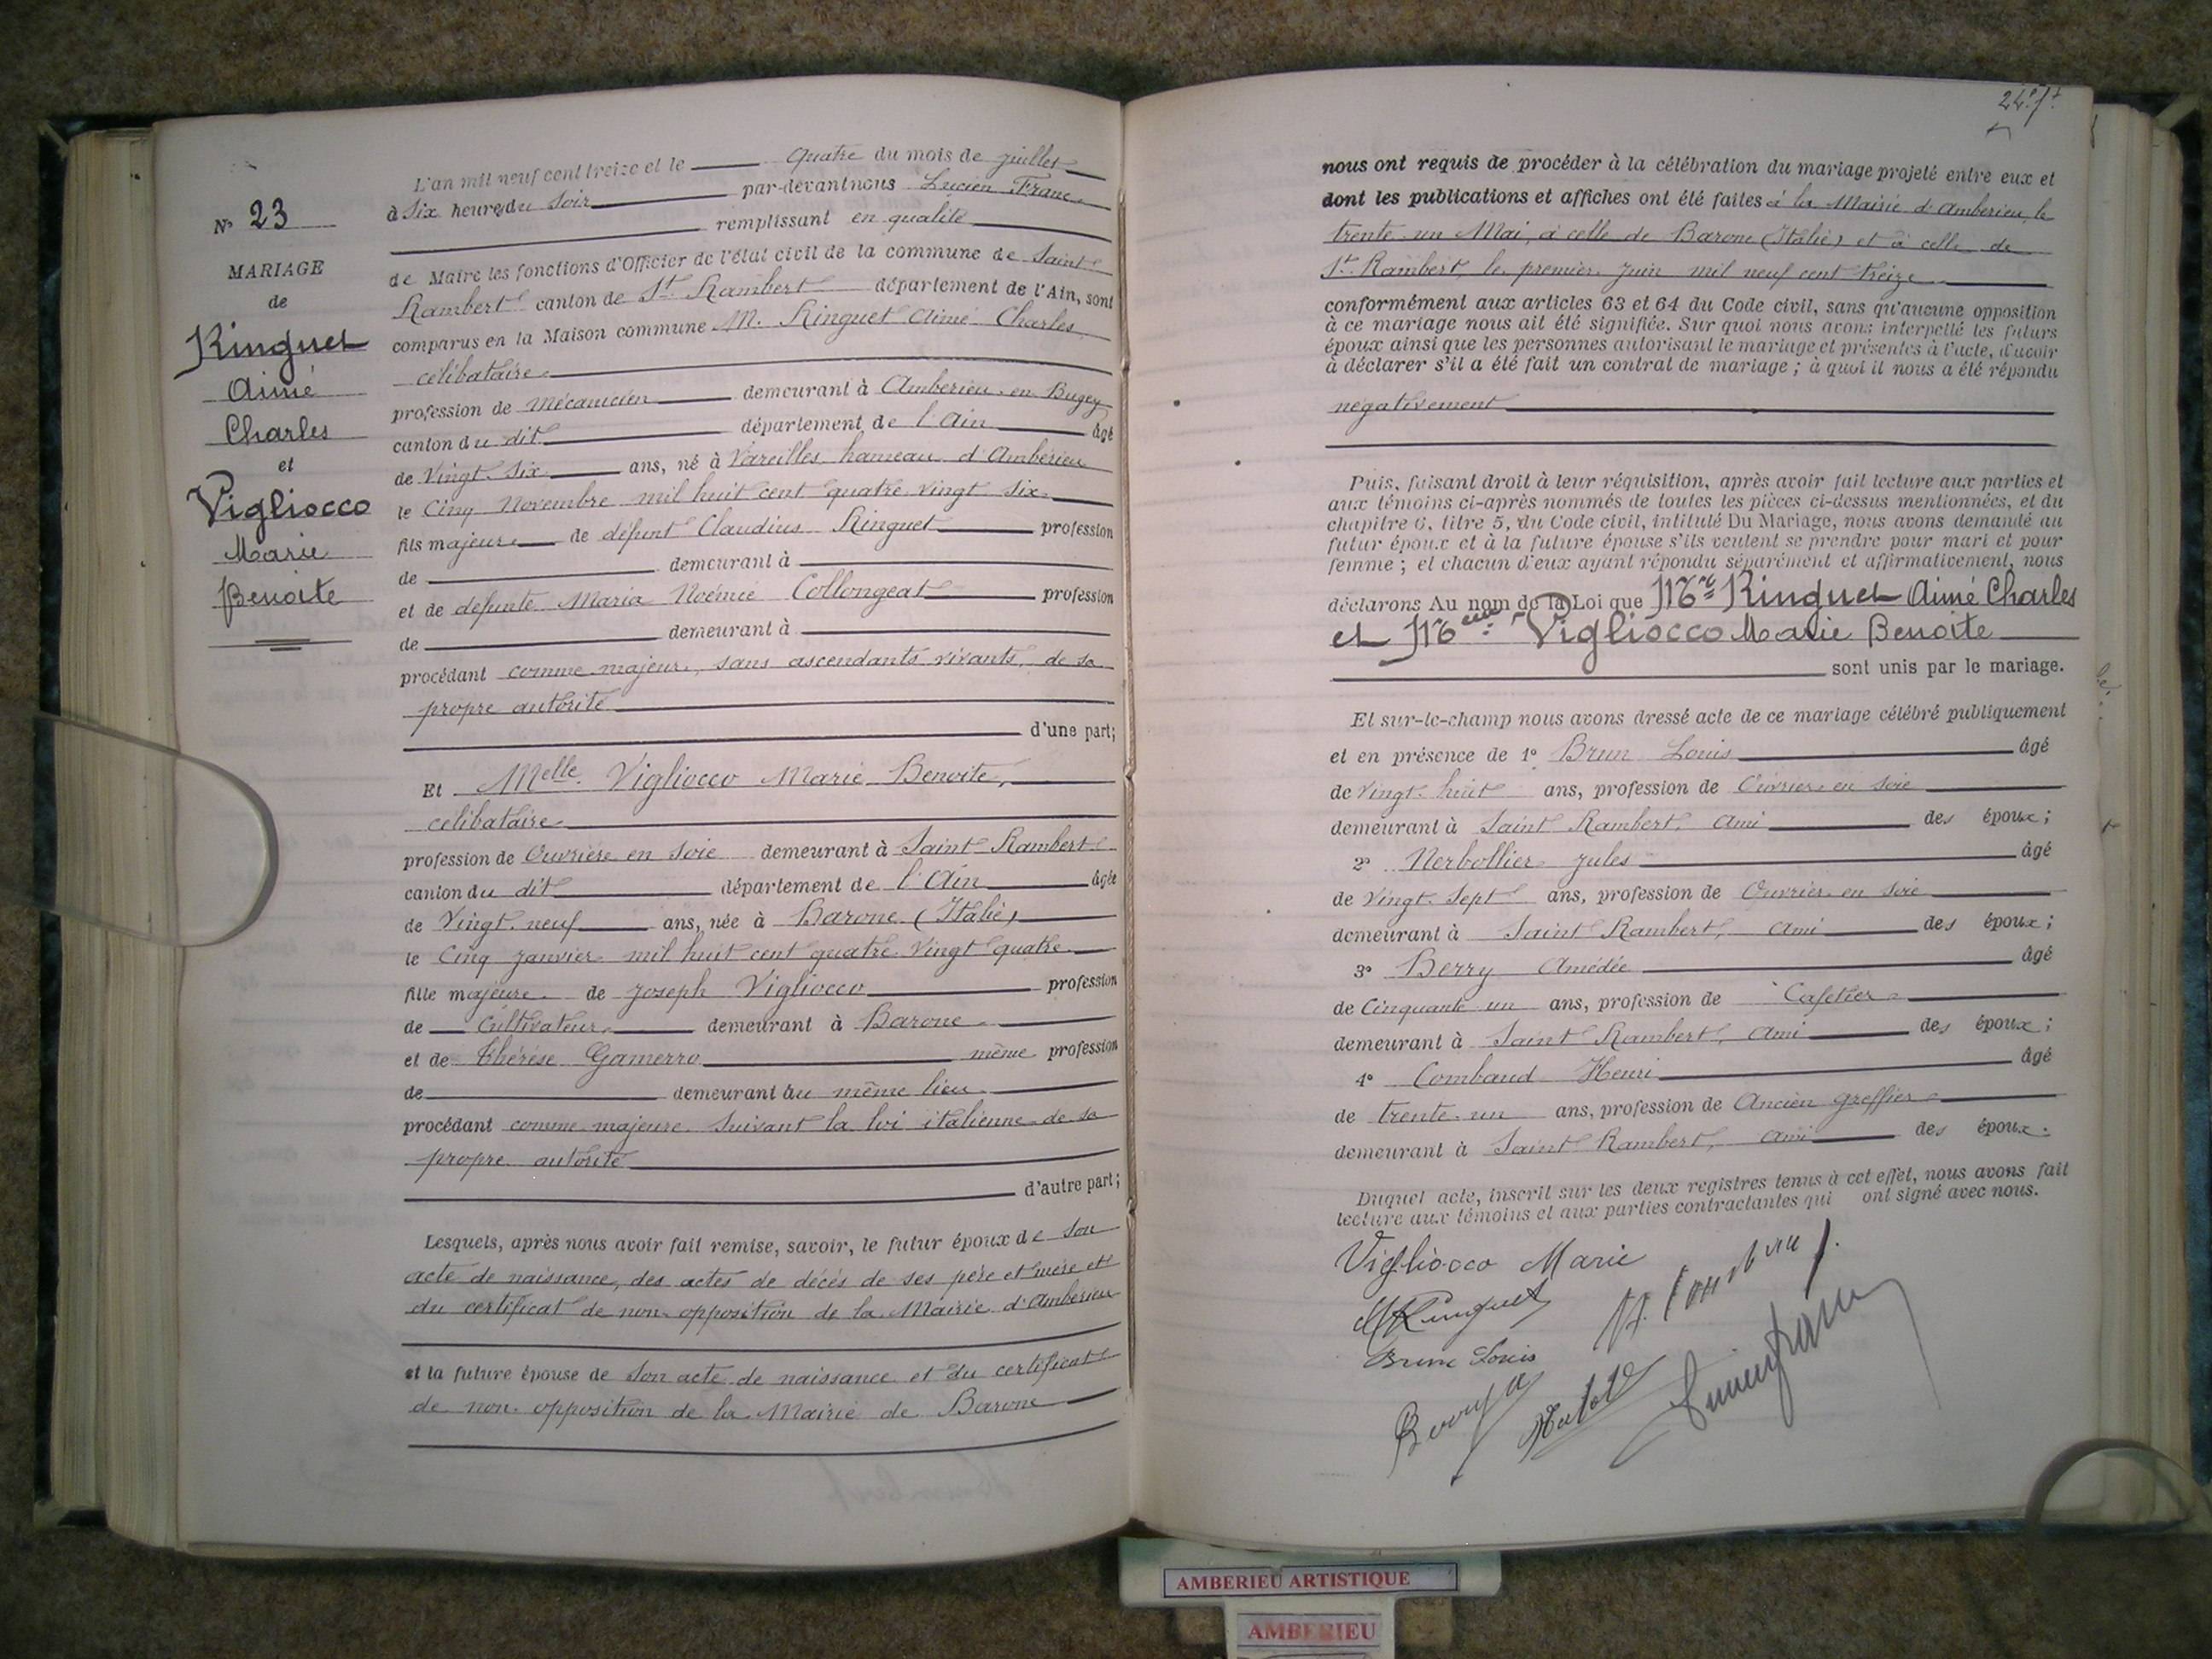 N° 23
MARIAGE
de
Ringuet
Aimé
Charles
et
Vigliocco
Marie
Benoite
L'an mil neuf cent treize et le quatre du mois de juillet
à six heures du soir par-devant nous Lucien Franc,
remplissant en qualité
de Maire les fonctions d'Officier de l'état civil de la commune de Saint
Rambert canton de St. Rambert département de l'Ain, sont
comparus en la Maison commune M. Ringuet Aimé Charles
célibataire
profession de mécanicien demeurant à Amberieu en Bugey
canton du dit département de l'Ain âgé
de Vingt six ans, né à Vareilles hameau d'Ambérieu
le Cinq Novembre mil huit cent quatre vingt six
fils majeur de défunt Claudius Ringuet profession
de demeurant à
et de défunte Maria Noémie Collongeat profession
de demeurant à
procédant comme majeur, sans ascendants vivants, de sa
propre autorité
d'une part;
Et Melle Vigliocco Marie Benoite,
celibataire
profession de Ouvrière en soie demeurant à Saint Rambert
canton du dit département de l'Ain âgée
de Vingt neuf ans, née à Barone (Italie)
le Cinq janvier mil huit cent quatre vingt quatre
fille majeure de Joseph Vigliocco profession
de Cultivateur demeurant à Barone
et de Thérèse Gamerro même profession
de demeurant au même lieu
procédant comme majeure suivant la loi italienne de sa
propre autorité
d'autre part;
Lesquels, après nous avoir fait remise, savoir, le futur époux de son
acte de naissance, des actes de décès de ses père et mère et
du certificat de non opposition de la Mairie d'Amberieu
et la future épouse de son acte de naissance et du certificat
de non opposition de la Mairie de Barone
nous ont requis de procéder à la célébration du mariage projeté entre eux et
dont les publications et affiches ont été faites à la Mairie d'Amberieu, le
trente un Mai, à celle de Barone (Italie) et à celle de
St. Rambert le premier juin mil neuf cent treize
conformément aux articles 63 et 64 du Code civil, sans qu'aucune opposition
à ce mariage nous ait été signifiée. Sur quoi nous avons interpellé les futurs
époux ainsi que les personnes autorisant le mariage et présentes à l'acte, d'avoir
à déclarer s'il a été fait un contrat de mariage ; à quoi il nous a été répondu
négativement
Puis, faisant droit à leur réquisition, après avoir fait lecture aux parties et
aux témoins ci-après nommés de toutes les pièces ci-dessus mentionnées, et du
chapitre 6, titre 5, du Code civil, intitulé Du Mariage, nous avons demandé au
futur époux et à la future épouse s'ils veulent se prendre pour mari et pour
femme ; et chacun d'eux ayant répondu séparément et affirmativement, nous
déclarons Au nom de la Loi que Mr Ringuet Aimé Charles
et Melle Vigliocco Marie Benoite
sont unis par le mariage.
Et sur-le-champ nous avons dressé acte de ce mariage célébré publiquement
et en présence de 1° Brun Louis âgé
de vingt huit ans, profession de Ouvrier en soie
demeurant à Saint Rambert, ami des époux;
2° Nerbollier Jules âgé
de vingt sept ans, profession de Ouvrier en soie
demeurant à Saint Rambert, ami des époux;
3° Berry Amédée âgé
de Cinquante un ans, profession de Cafetier
demeurant à Saint Rambert, ami des époux;
4° Combaud Henri âgé
de trente un ans, profession de Ancien greffier
demeurant à Saint Rambert, ami des époux.
Duquel acte, inscrit sur les deux registres tenus à cet effet, nous avons fait
lecture aux témoins et aux parties contractantes qui ont signé avec nous.
Vigliocco Marie
Ringuet
Brun Louis
AMBERIEU ARTISTIQUE
AMBERIEU